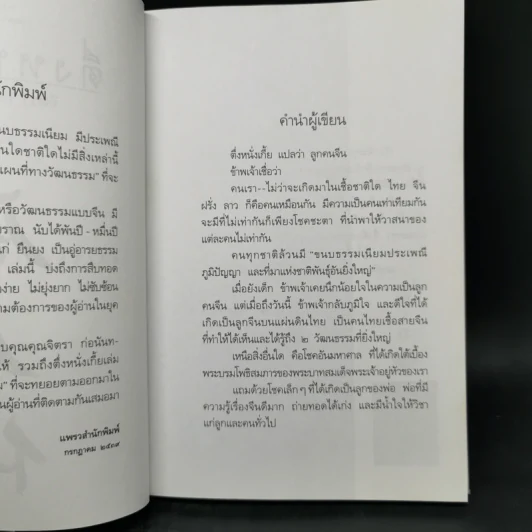 ักพิมพ์
นบธรรมเนียม มีประเพณี
นใดชาติใดไม่มีสิ่งเหล่านี้
แผนที่ทางวัฒนธรรม” ที่จะ
หรือวัฒนธรรมแบบจีน มี
ราณ นับได้พันปี-หมื่นปี
แก่ ยืนยง เป็นอู่อารยธรรม
เล่มนี้ บ่งถึงการสืบทอด
ง่าย ไม่ยุ่งยาก ไม่ซับซ้อน
ามต้องการของผู้อ่านในยุค
บคุณคุณจิตรา ก่อนันท-
ห้ รวมถึงตึ่งหนั่งเกี้ยเล่ม
” ที่จะทยอยตามออกมาใน
นผู้อ่านที่ติดตามกันเสมอมา
แพรวสำนักพิมพ์
กรกฎาคม ๒๕๓๙
คำนำผู้เขียน
ตึ่งหนั่งเกี้ย แปลว่า ลูกคนจีน
ข้าพเจ้าเชื่อว่า
คนเรา--ไม่ว่าจะเกิดมาในเชื้อชาติใด ไทย จีน
ฝรั่ง ลาว ก็คือคนเหมือนกัน มีความเป็นคนเท่าเทียมกัน
จะมีที่ไม่เท่ากันก็เพียงโชคชะตา ที่นำพาให้วาสนาของ
แต่ละคนไม่เท่ากัน
คนทุกชาติล้วนมี “ขนบธรรมเนียมประเพณี
ภูมิปัญญา และที่มาแห่งชาติพันธุ์อันยิ่งใหญ่”
เมื่อยังเด็ก ข้าพเจ้าเคยนึกน้อยใจในความเป็นลูก
คนจีน แต่เมื่อถึงวันนี้ ข้าพเจ้ากลับภูมิใจ และดีใจที่ได้
เกิดเป็นลูกจีนบนแผ่นดินไทย เป็นคนไทยเชื้อสายจีน
ที่ทำให้ได้เห็นและได้รู้ถึง ๒ วัฒนธรรมที่ยิ่งใหญ่
เหนือสิ่งอื่นใด คือโชคอันมหาศาล ที่ได้เกิดใต้เบื้อง
พระบรมโพธิสมภารของพระบาทสมเด็จพระเจ้าอยู่หัวของเรา
แถมด้วยโชคเล็กๆ ที่ได้เกิดเป็นลูกของพ่อ พ่อที่มี
ความรู้เรื่องจีนดีมาก ถ่ายทอดได้เก่ง และมีน้ำใจให้วิชา
แก่ลูกและคนทั่วไป